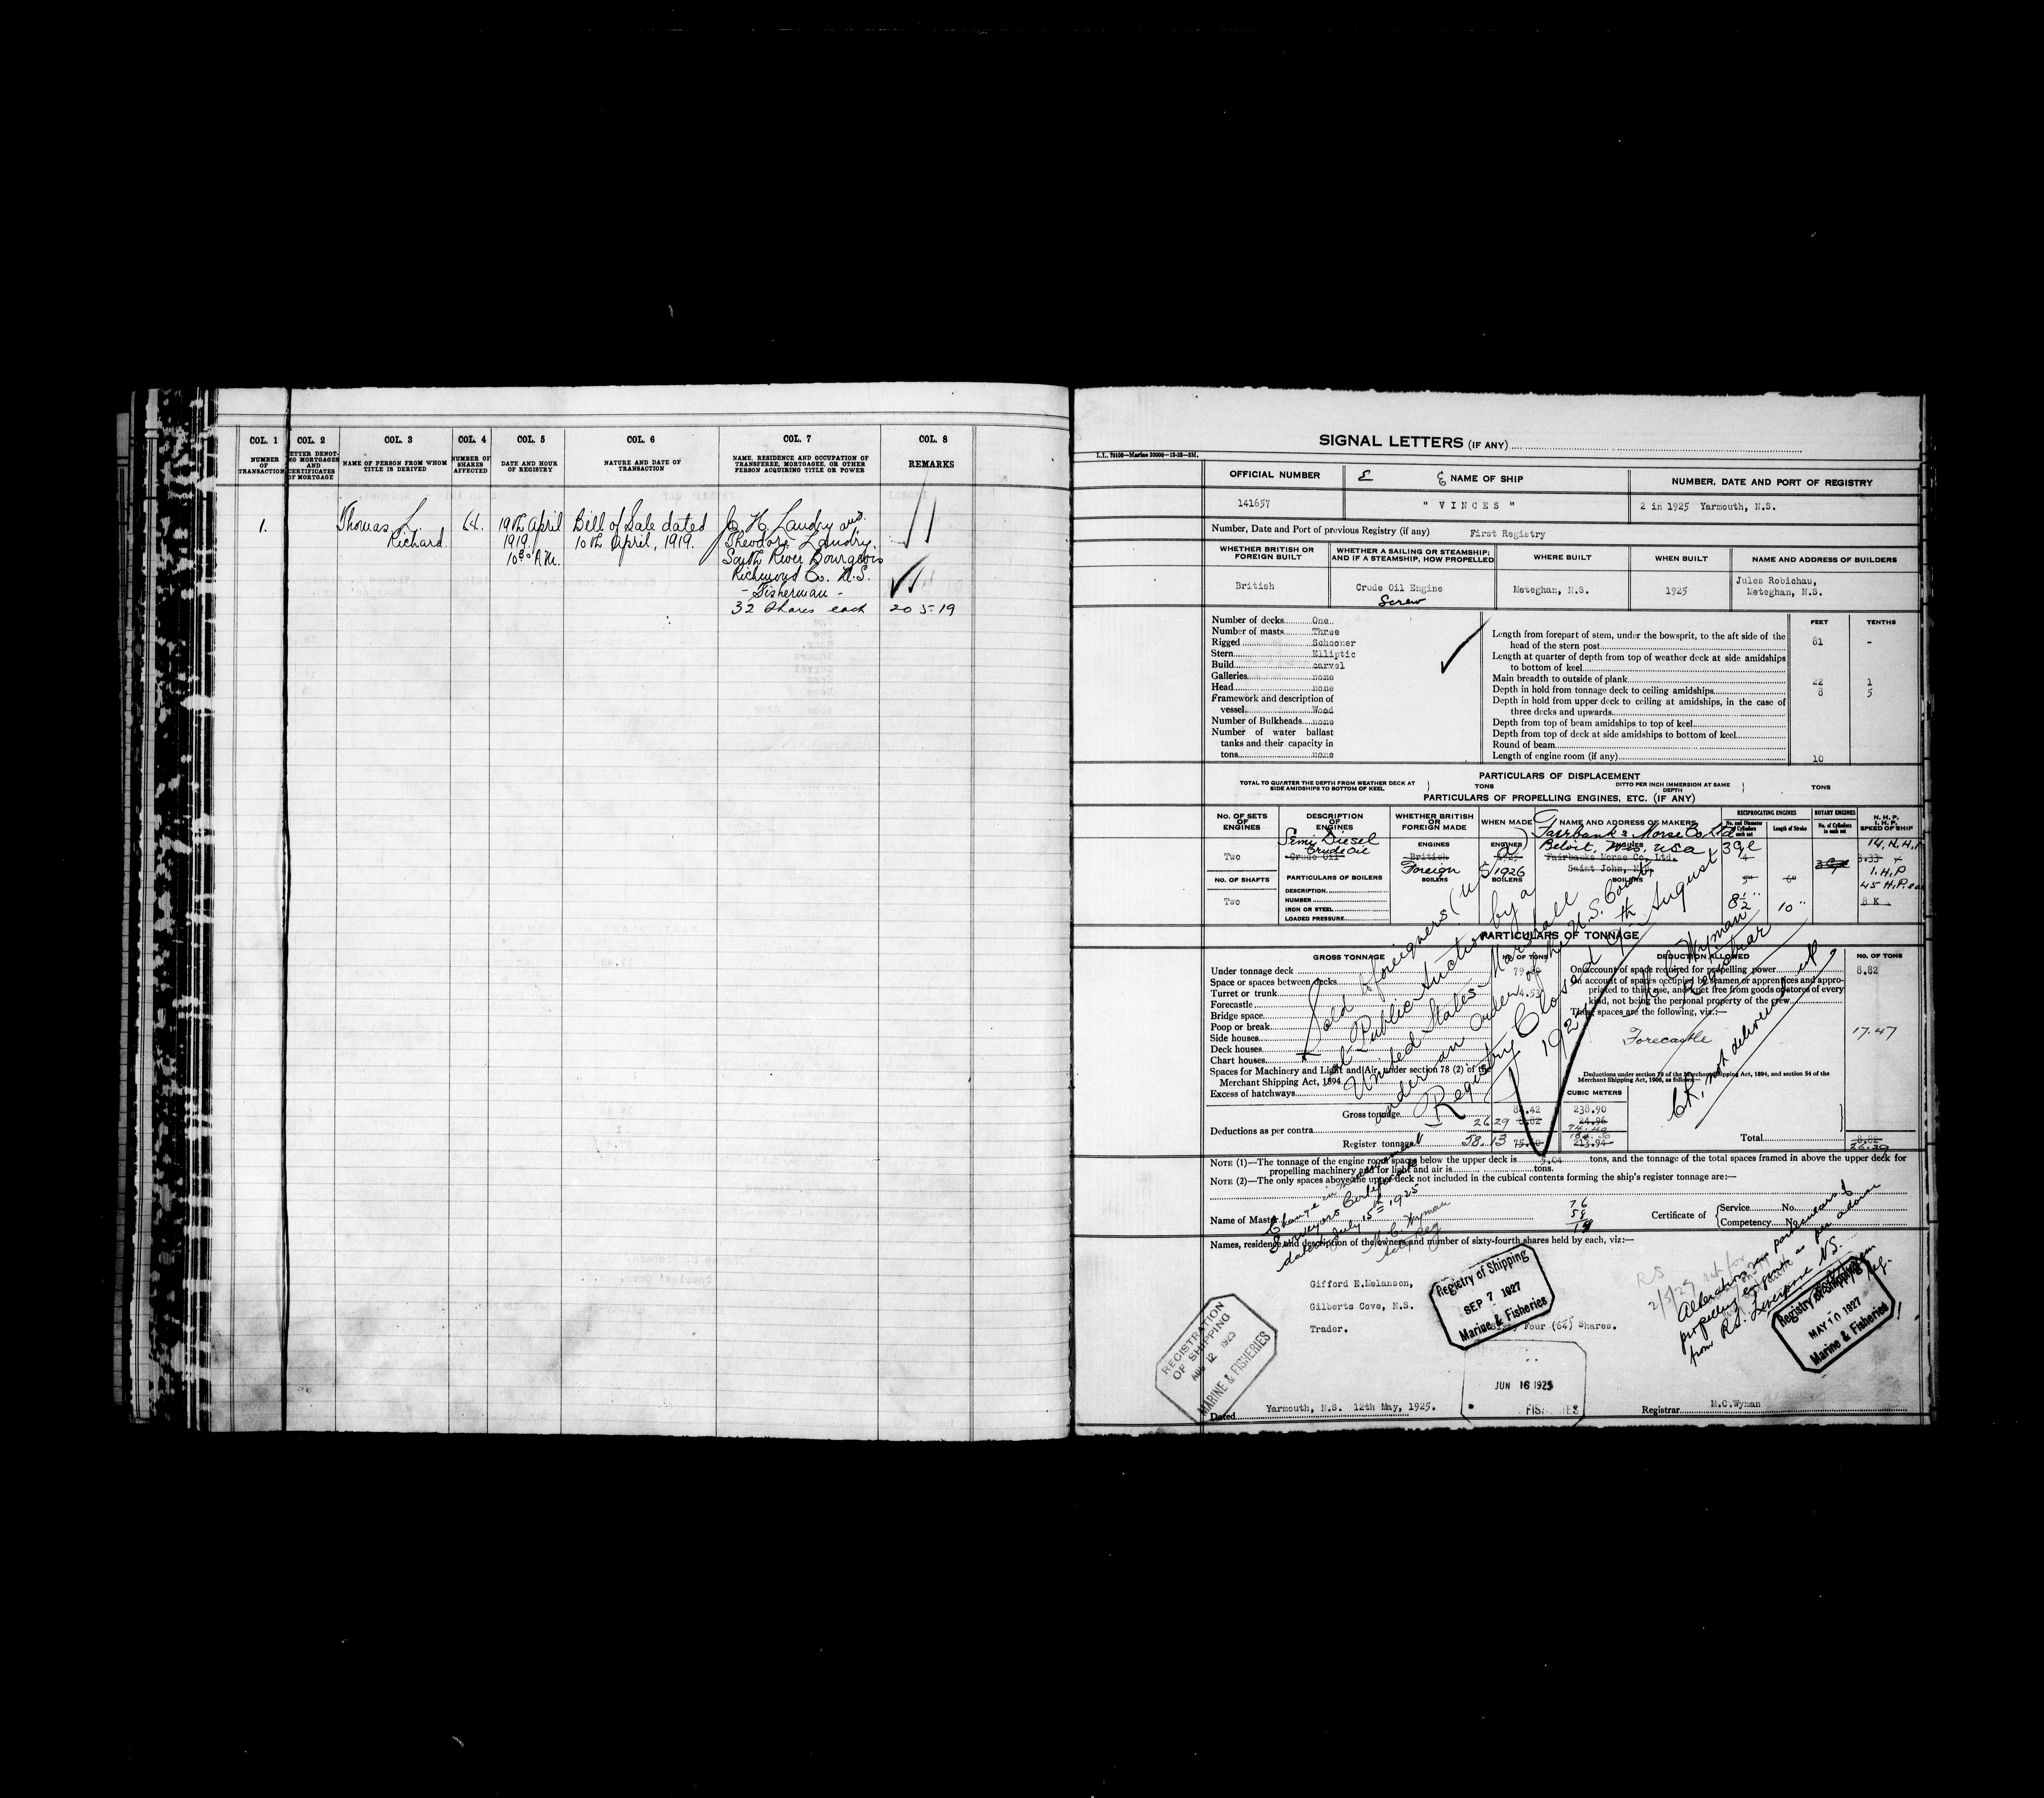 COL. 1
NUMBER
OF
TRANSACTION
COL. 2
LETTER DENOT-
ING MORTGAGES
AND
CERTIFICATES
OF MORTGAGE
COL. 3
NAME OF PERSON FROM WHOM
TITLE IS DERIVED
COL. 4
NUMBER OF
SHARES
AFFECTED
COL. 5
DATE AND HOUR
OF REGISTRY
COL. 6
NATURE AND DATE OF
TRANSACTION
COL. 7
NAME, RESIDENCE AND OCCUPATION OF
TRANSFEREE, MORTGAGEE, OR OTHER
PERSON ACQUIRING TITLE OR POWER
COL. 8
REMARKS
1.
Thomas L.
Richard
64.
19th April
1919.
10.30 A.M.
Bill of Sale dated
10th April, 1919.
H. Landry and
Theodore Landry.
South River Bourgeois
Richmond Co. N.S.
- Fisherman -
32 Shares each
20 5-19
SIGNAL LETTERS (IF ANY)
OFFICIAL NUMBER
NAME OF SHIP
NUMBER, DATE AND PORT OF REGISTRY
141657
" V I N C E S "
2 in 1925 Yarmouth, N.S.
Number, Date and Port of previous Registry (if any)
First Registry
WHETHER BRITISH OR
FOREIGN BUILT
WHETHER A SAILING OR STEAMSHIP;
AND IF A STEAMSHIP, HOW PROPELLED
WHERE BUILT
WHEN BUILT
NAME AND ADDRESS OF BUILDERS
British
Crude Oil Engine
Screw
Meteghan, N.S.
1925
Jules Robichau,
Meteghan, N.S.
Number of decks One
Number of masts Three
Rigged Schooner
Stern Elliptic
Build carvel
Galleries none
Head none
Framework and description of
vessel Wood
Number of Bulkheads none
Number of water ballast
tanks and their capacity in
tons none
FEET
TENTHS
Length from forepart of stem, under the bowsprit, to the aft side of the
head of the stern post 81 -
Length at quarter of depth from top of weather deck at side amidships
to bottom of keel
Main breadth to outside of plank 22 1
Depth in hold from tonnage deck to ceiling amidships 8 5
Depth in hold from upper deck to ceiling at amidships, in the case of
three decks and upwards
Depth from top of beam amidships to top of keel
Depth from top of deck at side amidships to bottom of keel
Round of beam
Length of engine room (if any) 10
PARTICULARS OF DISPLACEMENT
TOTAL TO QUARTER THE DEPTH FROM WEATHER DECK AT
SIDE AMIDSHIPS TO BOTTOM OF KEEL
TONS
DITTO PER INCH IMMERSION AT SAME
DEPTH
TONS
PARTICULARS OF PROPELLING ENGINES, ETC. (IF ANY)
NO. OF SETS
OF
ENGINES
DESCRIPTION
OF
ENGINES
WHETHER BRITISH
OR
FOREIGN MADE
WHEN MADE
NAME AND ADDRESS OF MAKERS
RECIPROCATING ENGINES
Length of Stroke
ROTARY ENGINES
N. H. P.
I. H. P.
SPEED OF SHIP
Two
Semi Diesel
Crude Oil
Crude Oil
ENGINES
British
Foreign
BOILERS
ENGINES
1926
BOILERS
Fairbanks Morse Co Ltd
ENGINES
Beloit, Wis. USA
Fairbanks Morse Co, Ltd.
Saint John,
BOILERS
3 Cyl
4
8 1/2"
10"
45 H.P.
8 K
NO. OF SHAFTS
Two
PARTICULARS OF BOILERS
DESCRIPTION
NUMBER
IRON OR STEEL
LOADED PRESSURE
PARTICULARS OF TONNAGE
GROSS TONNAGE
NO. OF TONS
DEDUCTION ALLOWED
NO. OF TONS
Under tonnage deck
Space or spaces between decks
Turret or trunk 4.53
Forecastle
Bridge space
Poop or break
Side houses
Deck houses
Chart houses
Spaces for Machinery and Light and Air, under section 78 (2) of the
Merchant Shipping Act, 1894
Excess of hatchways
CUBIC METERS
Gross tonnage 238.90
Deductions as per contra 26 29 8.82 24.96
Register tonnage 58.13 213.94
On account of space required for propelling power 8.82
On account of spaces occupied by seamen or apprentices and appro-
priated to their use, and kept free from goods or stores of every
kind, not being the personal property of the crew
These spaces are the following, viz.:—
Forecastle
17.47
Deductions under section 79 of the Merchant Shipping Act, 1894, and section 54 of the
Merchant Shipping Act, 1906, as follows:—
Total 8.82
26.29
Sold to foreigners (U S A)
at Public Auction by a
United States Marshall
under an order of the U.S. Court
Registry Closed 9th August
M. C. Wyman
Registrar
C.R. not delivered up
NOTE (1)—The tonnage of the engine room spaces below the upper deck is tons, and the tonnage of the total spaces framed in above the upper deck for
propelling machinery and for light and air is tons.
NOTE (2)—The only spaces above the upper deck not included in the cubical contents forming the ship's register tonnage are:—
Change in
Surveyors Certificate
dated July 15th 1925
M. C. Wyman
Name of Master
76
58
Certificate of
Service No.
Competency No.
Names, residence and description of the owners and number of sixty-fourth shares held by each, viz:—
Gifford E.Melanson,
Gilberts Cove, N.S.
Trader.
Sixty Four (64) Shares.
Alteration in particulars of
propelling engines as per advice
from RS. Liverpool NS.
Registry of Shipping
SEP 7 1927
Marine & Fisheries
Registry of Shipping
MAY 10 1927
Marine & Fisheries
REGISTRATION
OF SHIPPING
AUG 12 1925
MARINE & FISHERIES
JUN 16 1925
Dated Yarmouth, N.S. 12th May, 1925.
Registrar M.C.Wyman